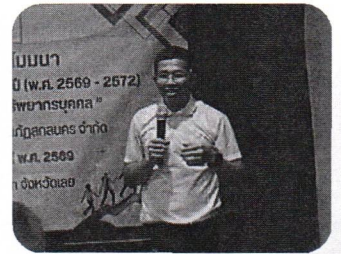 ัมมนา
ปี (พ.ศ. 2569 - 2572)
รัพยากรบุคคล"
ภัฏสกลนคร จำกัด
พ.ศ. 2569
จังหวัดเลย